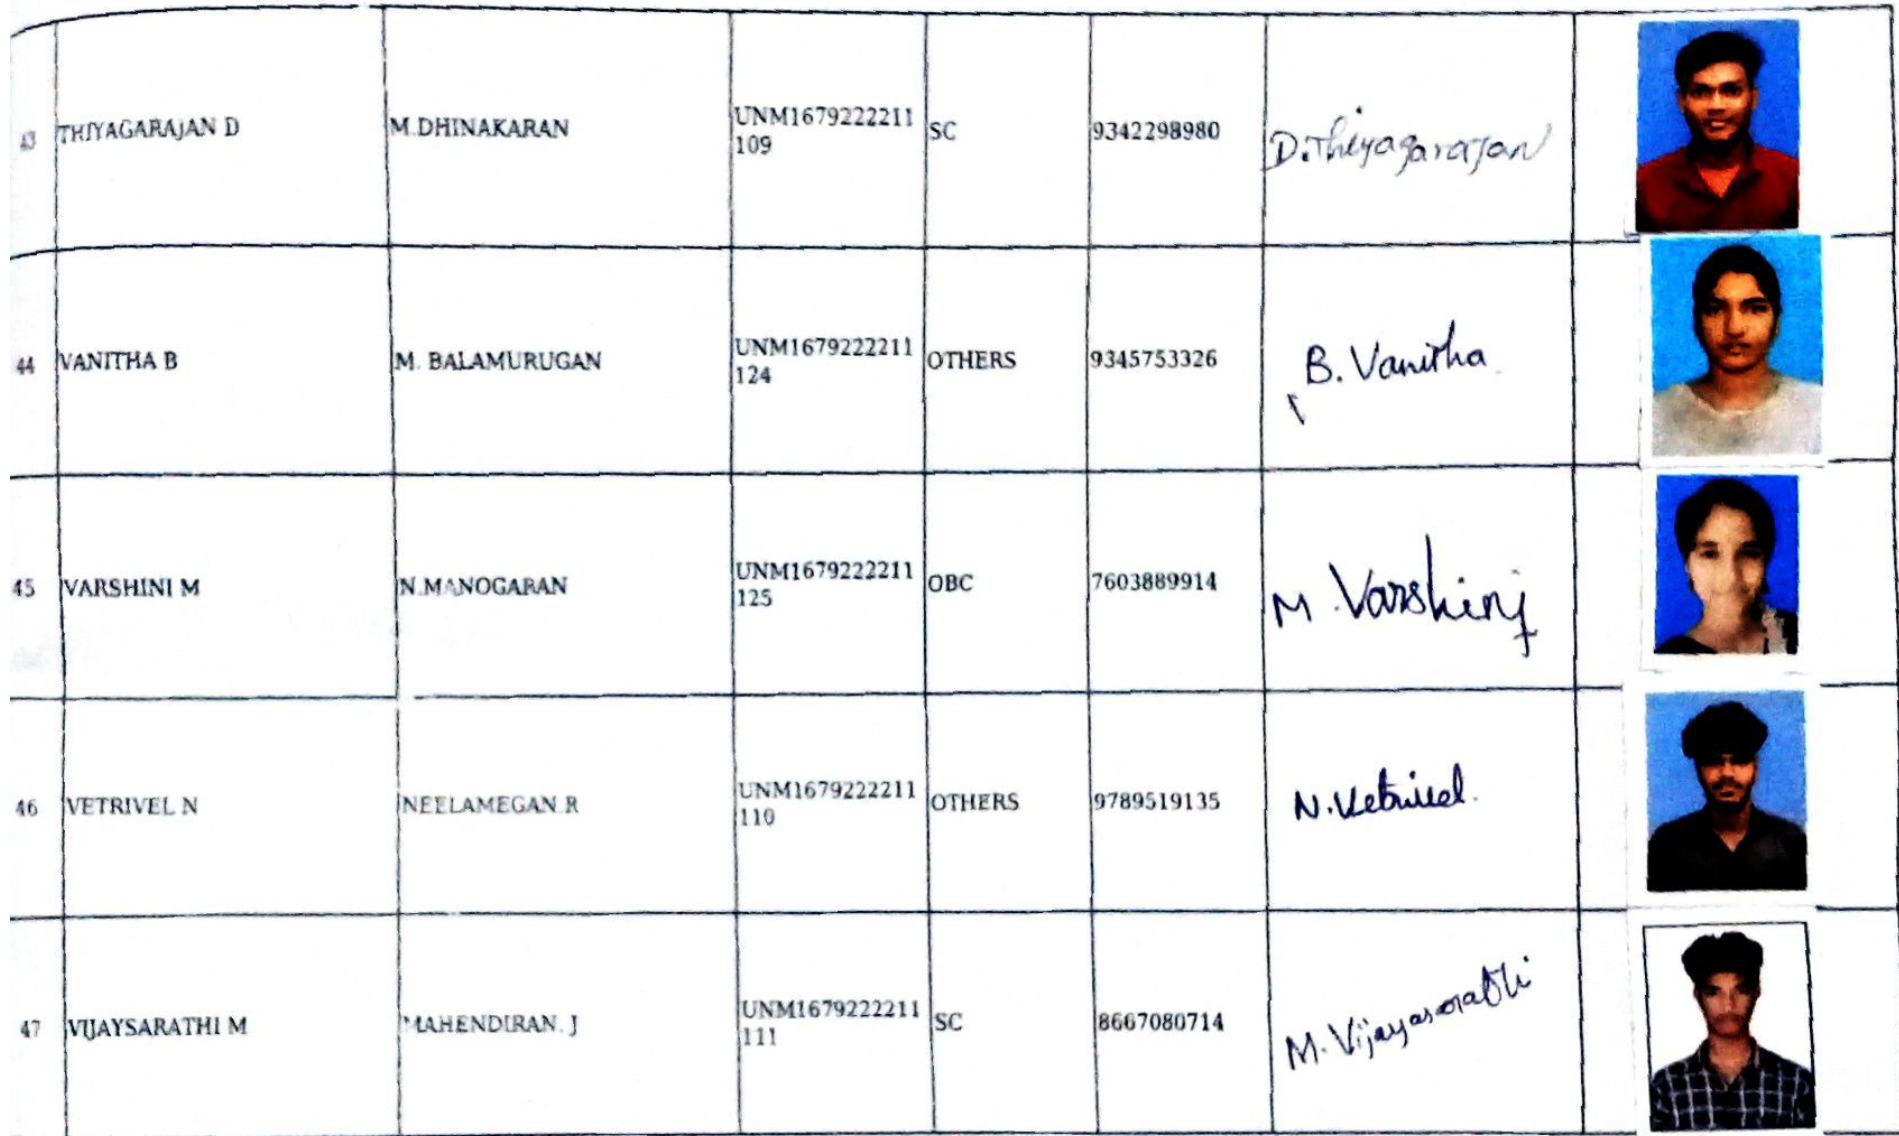 43 THIYAGARAJAN D M.DHINAKARAN UNM1679222211 SC 9342298980 D.Thiyagarajan
109
44 VANITHA B M. BALAMURUGAN UNM1679222211 OTHERS 9345753326 B. Vanitha
124
45 VARSHINI M N.MANOGARAN UNM1679222211 OBC 7603889914 M. Varshini
125
46 VETRIVEL N NEELAMEGAN.R UNM1679222211 OTHERS 9789519135 N.Vetrivel.
110
47 VIJAYSARATHI M MAHENDIRAN. J UNM1679222211 SC 8667080714 M. Vijayasarathi
111